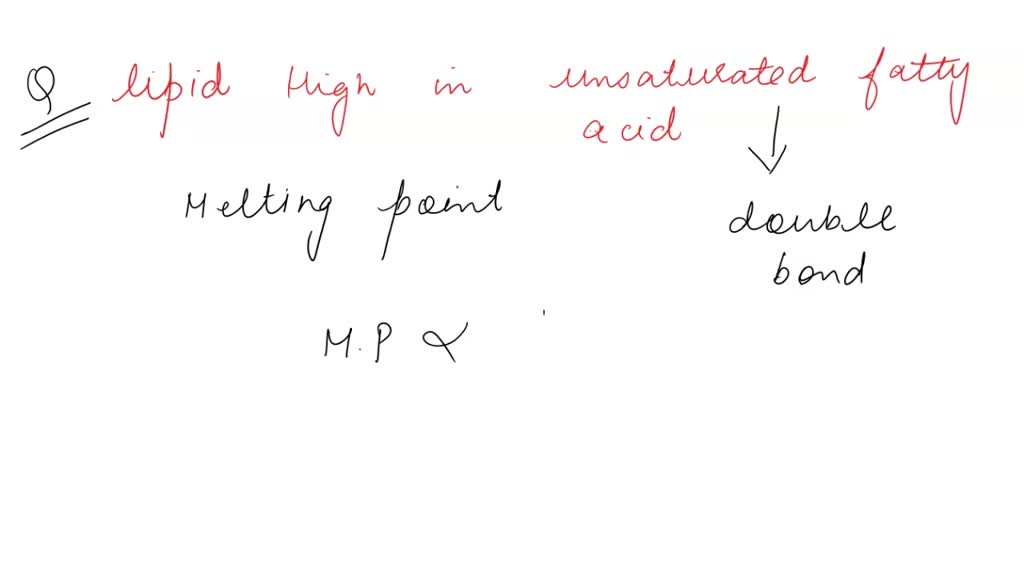 Q lipid High in unsaturated fatty
acid
Melting point
double
bond
M.P ∝